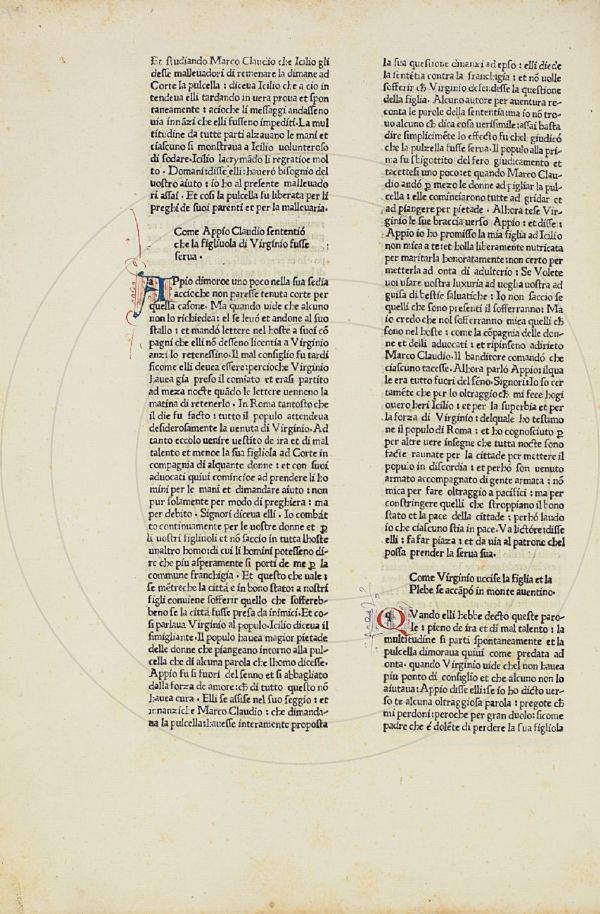 Et studiando Marco Claudio che Icilio gli
desse malleuadori di remenare la dimane ad
Corte la pulcella : diceua Icilio che a cio in
tendeua elli tardando in uera proua et spon
taneamente : acioche li messaggi andasseno
uia innāzi che elli fusseno impediti. La mul
titudine da tutte parti alzauano le mani et
ciascuno si monstraua a Icilio uolunteroso
di sodare. Icilio lacrymādo li regratioe mol
to . Domani disse elli : hauerò bisognio del
uostro aiuto : io ho al presente malleuado
ri assai . Et cosi la pulcella fu liberata per li
preghi de suoi parenti et per la malleuaria.
Come Appio Claudio sententiò
che la figliuola di Virginio fusse
serua .
APpio dimoroe uno poco nella sua sedia
accioche non paresse tenuta corte per
quella casone . Ma quando uide che alcuno
non lo richiedea : el se leuò et andone al suo
stallo : et mandò lettere nel hoste a suoi cō
pagni che elli nō desseno licentia a Virginio
anzi lo retenessino. Il mal consiglio fu tardi
sicome elli deuea essere : percioche Virginio
hauea gia preso il comiato et erasi partito
ad meza nocte quādo le lettere uenneno la
matina di retenerlo . In Roma tantosto che
il die fu facto : tutto il populo attendeua
desiderosamente la uenuta di Virginio. Ad
tanto eccolo uenire uestito de ira et di mal
talento et menoe la sua figliola ad Corte in
compagnia di alquante donne : et con suoi
aduocati quiui comincioe ad prendere li ho
mini per le mani et dimandare aiuto : non
pur solamente per modo di preghiera : ma
per debito . Signori diceua elli . Io combat
to continuamente per le uostre donne et ꝑ
li uostri figliuoli et nō faccio in tutta lhoste
unaltro homo : di cui li homini potesseno di-
re che piu asperamente si porti de me ꝑ la
commune franchigia . Et questo che uale :
se mētreche la città e in bono stato : a nostri
figli conuiene sofferir quello che soffereb-
beno se la città fusse presa da inimici. Et co-
si parlaua Virginio al populo. Icilio diceua il
simigliante. Il populo hauea magior pietade
delle donne che piangeano intorno alla pul-
cella che di alcuna parola che lhomo dicesse.
Appio fu si fuori del senno et si abbagliato
dalla forza de amore : cħ di tutto questo nō
hauea cura . Elli se assise nel suo seggio : et
innanziche Marco Claudio : che dimanda-
ua la pulcella : hauesse interamente proposta
la sua questione dinanzi ad epso : elli diede
la sentētia contra la franchigia : et nō uolle
sofferir cħ Virginio defendesse la questione
della figlia. Alcuno autore per auentura re-
conta le parole della sententia : ma io nō tro-
uo alcuno cħ dica cosa uerisimile : assai basta
dire simplicimēte lo effecto fu chel giudicò
che la pulzella fusse serua. Il populo alla pri-
ma fu sbigottito del fero giudicamento et
tacettesi uno poco : et quando Marco Clau-
dio andò ꝑ mezo le donne ad pigliar la pul-
cella : elle cominciarono tutte ad gridar et
ad piangere per pietade . Alhora tese Vir-
ginio le sue braccia uerso Appio : et disse :
Appio io ho promisso la mia figlia ad Icilio
non mica a te : et holla liberamente nutricata
per maritarla honoratamente : non certo per
metterla ad onta di adulterio : Se Volete
uoi usare uostra luxuria ad ueglia uostra ad
guisa di bestie saluatiche : Io non saccio se
quelli che sono presenti il sofferranno : Ma
io credo che nol sofferranno mica quelli cħ
sono nel hoste : come la cōpagnia delle don-
ne et delli aduocati : et ripinseno adirieto
Marco Claudio. Il banditore comandò che
ciascuno tacesse. Alhora parlò Appio : ilqua
le era tutto fuori del seno. Signori : Io so cer
tamēte che per lo oltraggio cħ mi fece hogi
ouero heri Icilio : et per la superbia et per
la forza di Virginio : delquale ho testimo
ne il populo di Roma : et ho cognosciuto ꝑ
per altre uere insegne che tutta nocte sono
facte raunate per la cittade per mettere il
populo in discordia : et perhò son uenuto
armato accompagnato di gente armata : nō
mica per fare oltraggio a pacifici : ma per
constringere quelli che stroppiano il bono
stato et la pace della cittade : perhò laudo
io che ciascuno stia in pace. Va lictòre : disse
elli : fa far piaza : et da uia al patrone chel
possa prender la serua sua.
Come Virginio uccise la figlia et la
Plebe se accāpò in monte auentino.
QVando elli hebbe decto queste paro-
le : pieno de ira et di mal talento : la
multitudine si partì spontaneamente et la
pulcella dimoraua quiui come predata ad
onta. quando Virginio uide chel non hauea
piu ponto di consiglio et che alcuno non lo
aiutaua : Appio disse elli : se io ho dicto uer-
so te alcuna oltraggiosa parola : pregote cħ
mi perdoni : peroche per gran duolo : sicome
padre che é dolēte di perdere la sua figliola